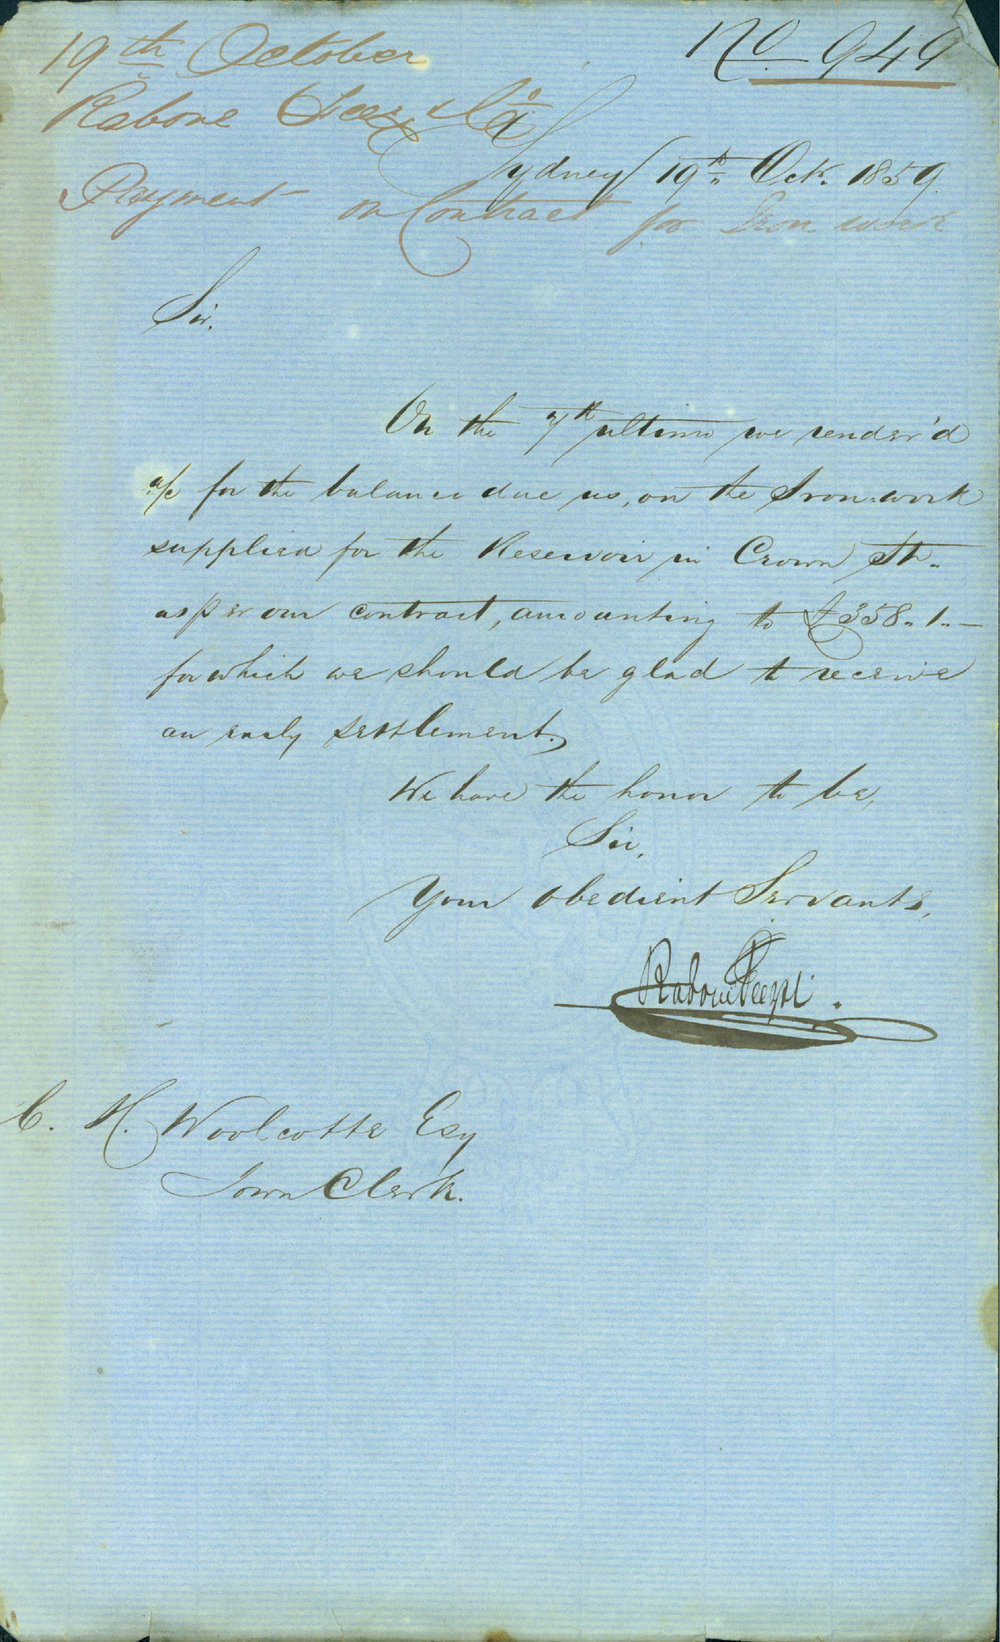 19th October
No. 949
Rabone Feez & Co
Sydney 19th Oct. 1859
Payment on Contract for Iron work
Sir.
On the 7th ultimo we render'd
a/c for the balance due us, on the Iron-work
supplied for the Reservoir in Crown St.
as per our contract, amounting to £358.1.-
for which we should be glad to receive
an early settlement.
We have the honor to be,
Sir,
Your obedient Servants,
Rabone Feez & Co.
C. H. Woolcotte Esq
Town Clerk.